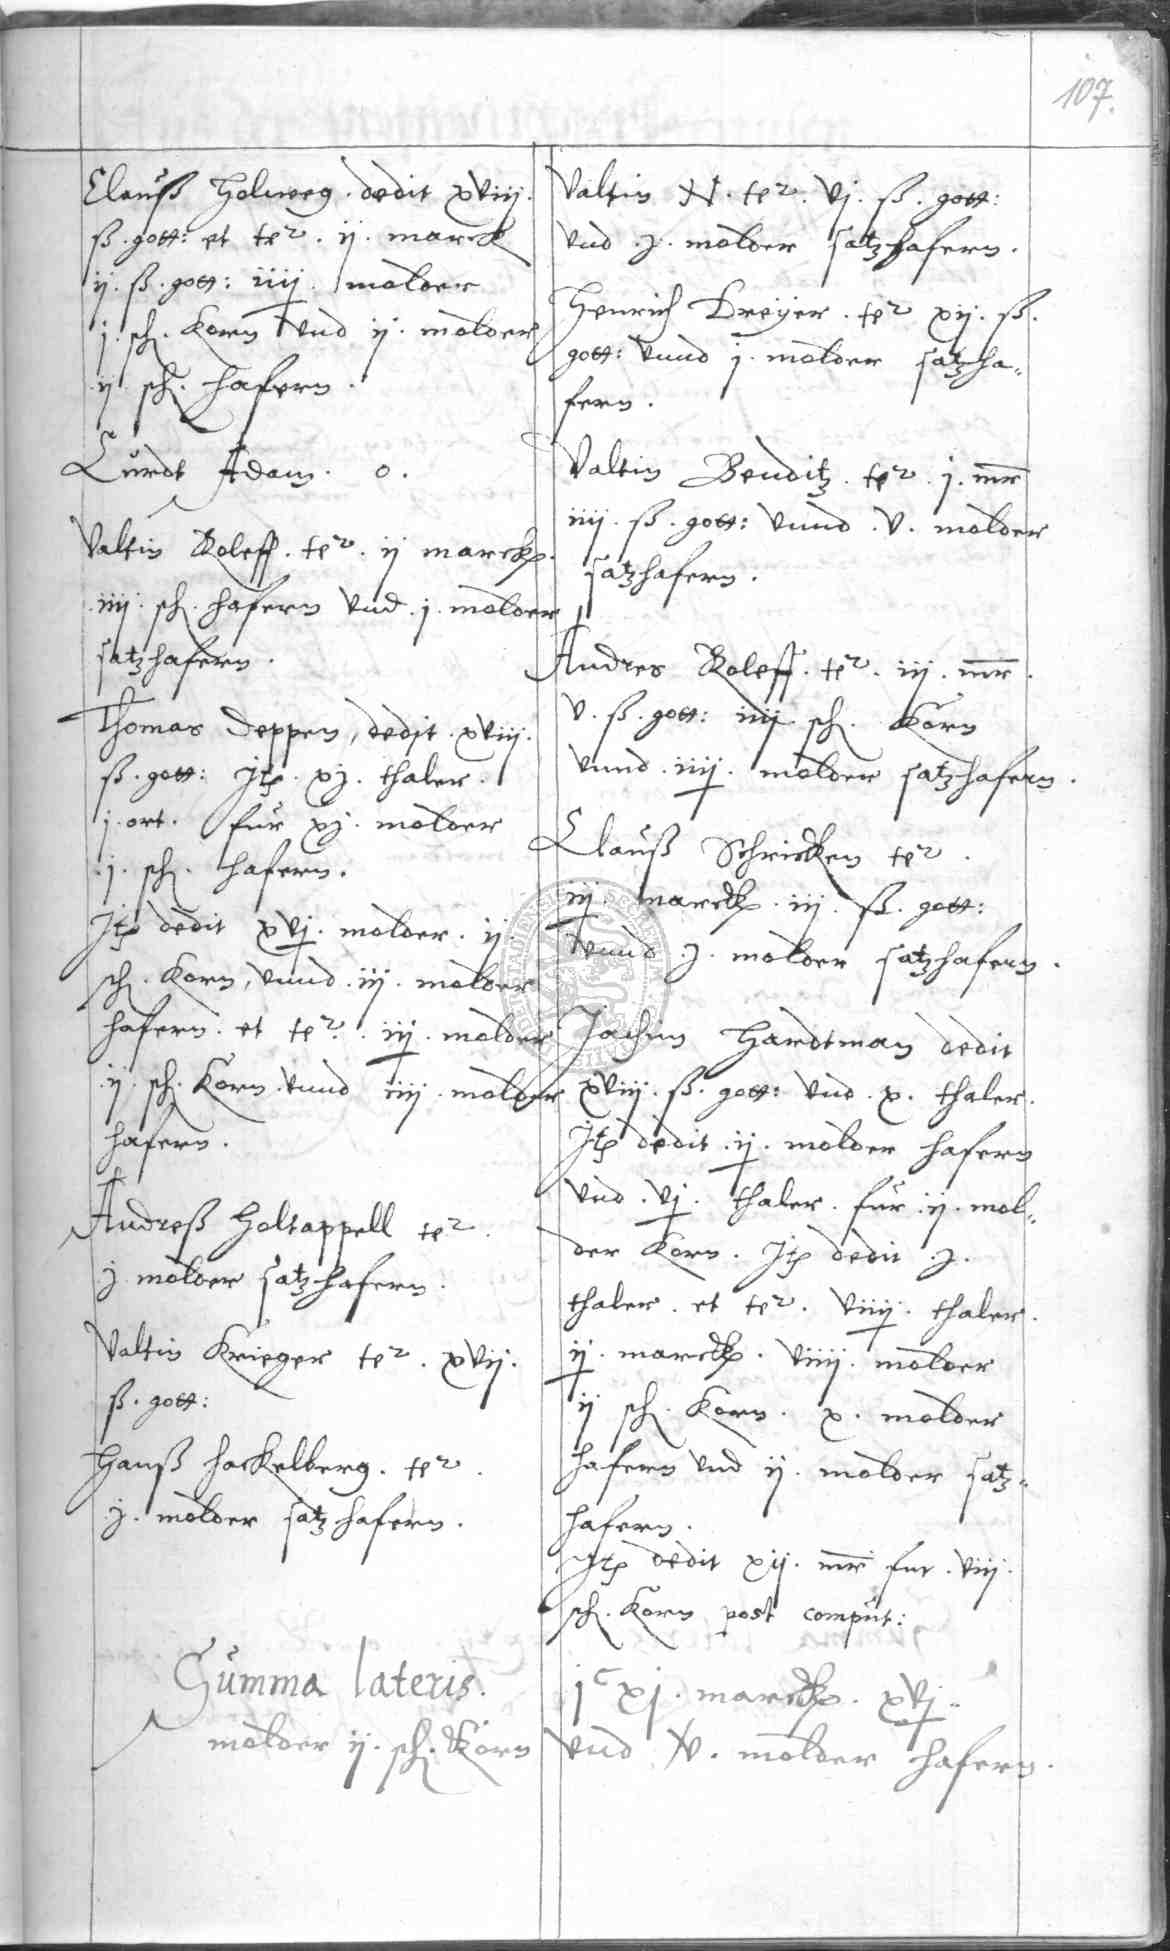 107.
Clauß Holweg. dedit xviij.
ß. gott: et ter. ij. marck
ij. ß. gott: iiij. molder
j. sch. Korn vnd ij. molder
ij. sch. hafern.
Curdt Adam. o.
Valtin Roleff. ter. ij marck.
iiij. sch. hafern vnd. j. molder
satzhafern.
Thomas Deppen, dedit. xviij.
ß. gott: Itm. xj. thaler.
j. ort. für xj. molder
j. sch. hafern.
Itm dedit xvj. molder. ij
sch. Korn, vnnd. iij. molder
hafern. et ter. iij. molder
ij. sch. Korn vnnd iiij. molder
hafern.
Andreß Holtappell ter.
j. molder satzhafern.
Valtin Krieger ter. xvij.
ß. gott:
Hanß Hackelberg. ter.
j. molder satzhafern.
Valtin N. ter. vj. ß. gott:
vnd. j. molder satzhafern.
Henrich Dreyer. ter xij. ß.
gott: vnnd j. molder satzha„
fern.
Valtin Benditz. ter. j. mr
iiij. ß. gott: vnnd. v. molder
satzhafern.
Andres Roleff. ter. iij. mr.
v. ß. gott: iiij sch. Korn
vnnd. iiij. molder satzhafern.
Clauß Schricken ter.
iij. marck. iij. ß. gott:
vnnd. j. molder satzhafern.
Jachim Hardtman dedit
xviij. ß. gott: vnd. x. thaler.
Itm dedit. ij. molder hafern
vnd. vj. thaler. für. ij. mol„
der Korn. Itm dedit. j.
thaler. et ter. viiij. thaler.
ij. marck. viiij. molder
ij sch. Korn. x. molder
hafern vnd ij. molder satz„
hafern.
Itm dedit xij. mr fur. viij.
sch. Korn post comput:
Summa lateris. jc xj. marck. xvj.
molder ij. sch. Korn vnd xv. molder hafern.